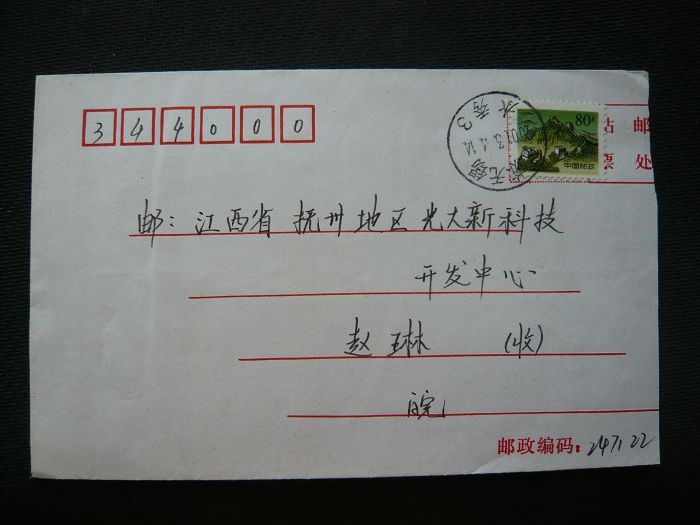 344000
80分
中国邮政
贴邮
票处
2001.3.4.14
邮：江西省抚州地区光大新科技
开发中心
赵琳（收）
皖
邮政编码：247122